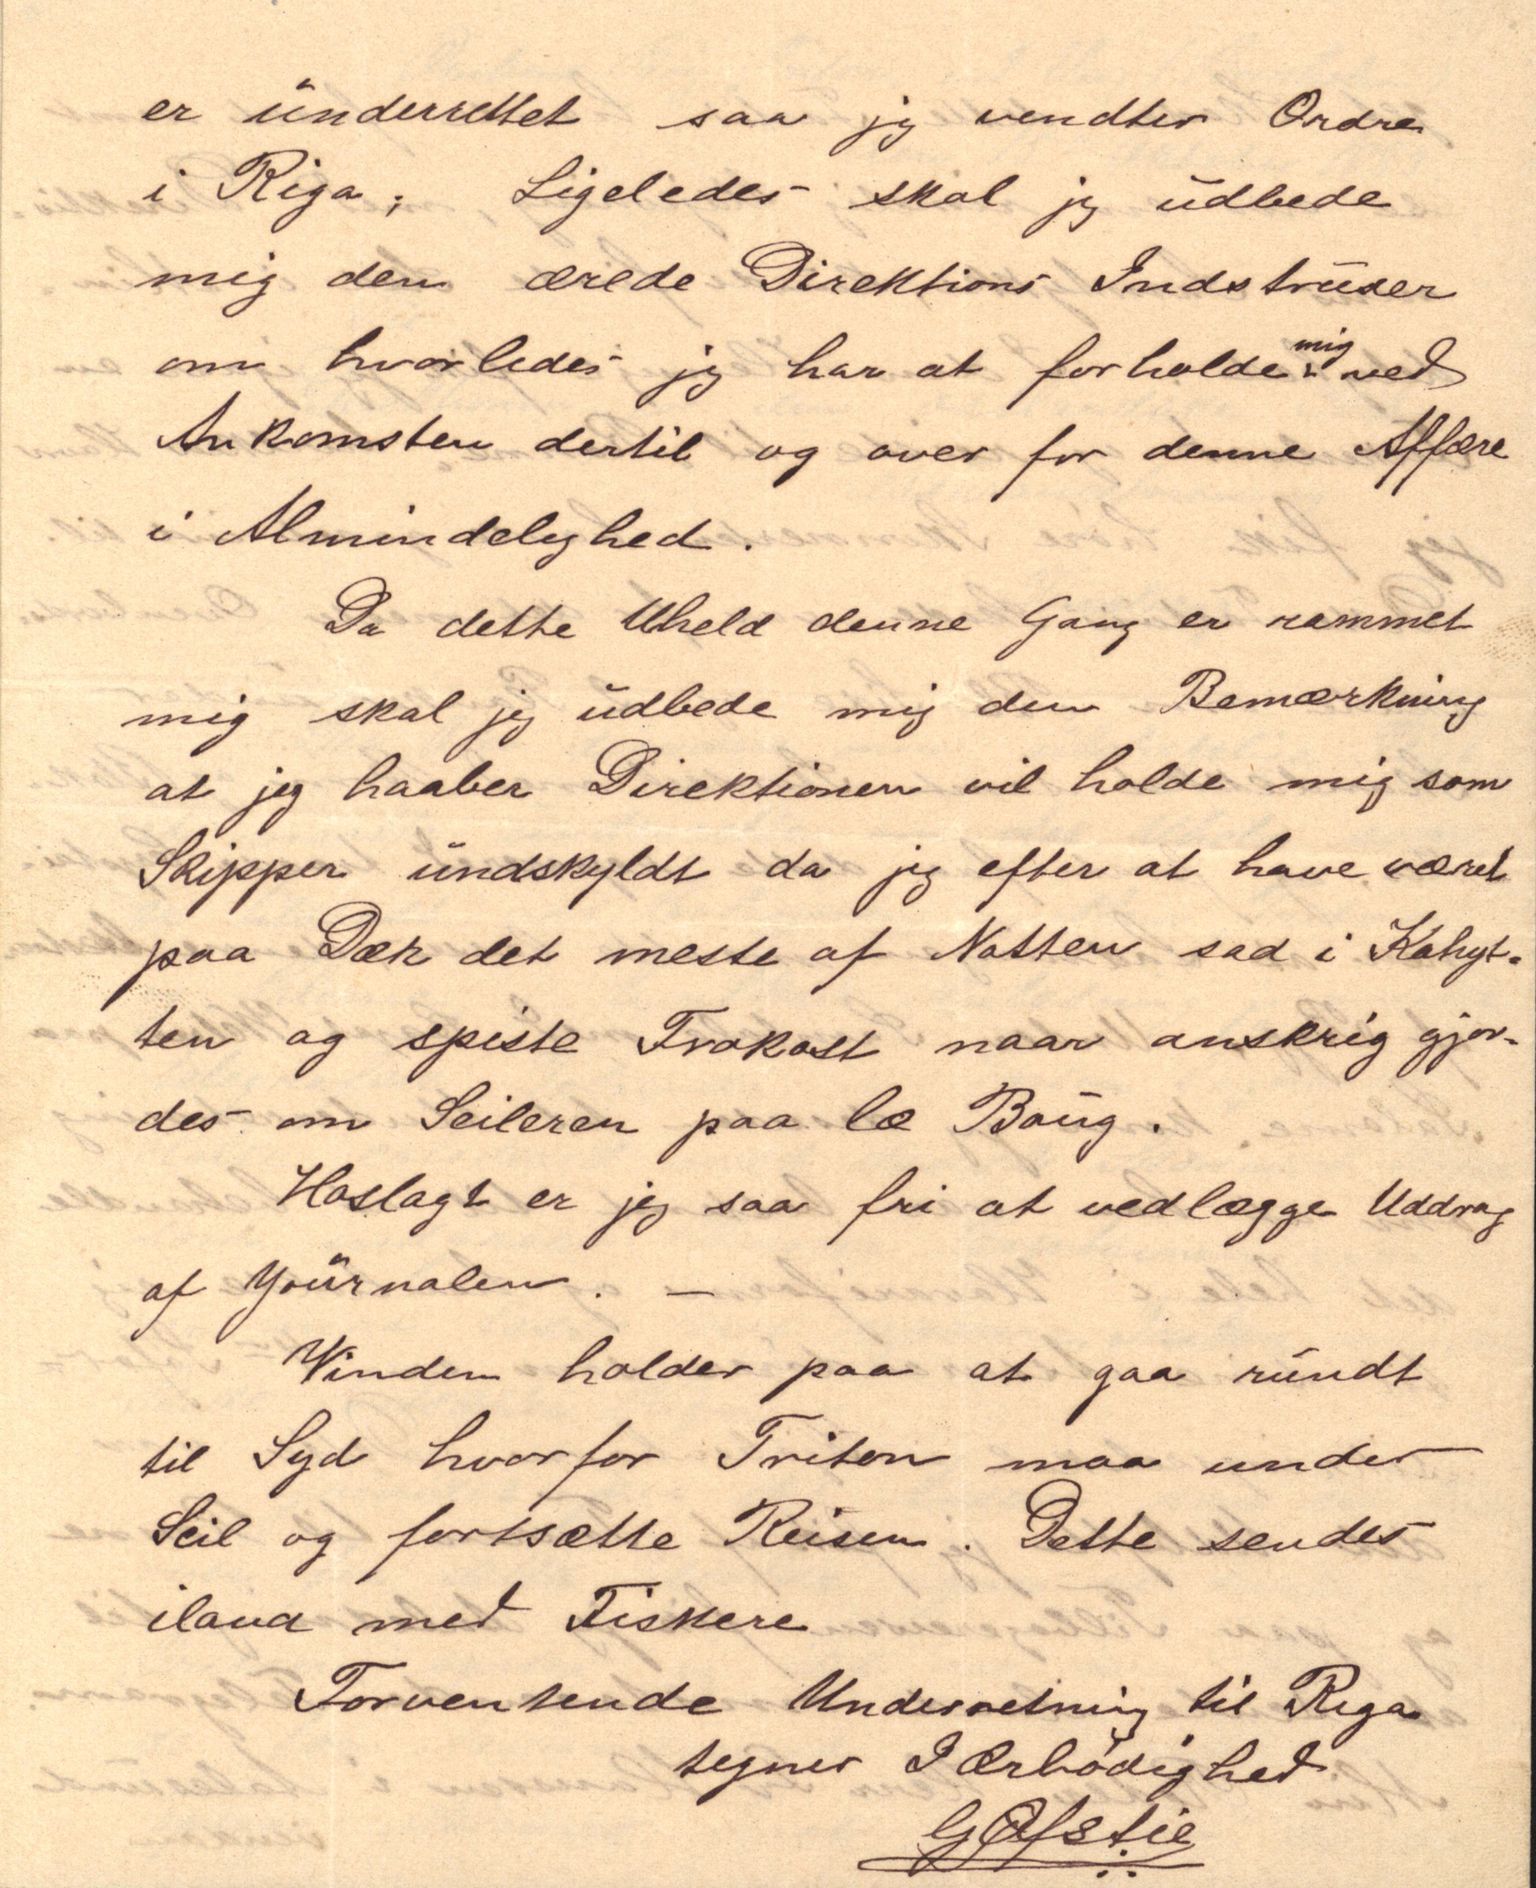 er underrettet saa jeg vendter Ordre
i Riga; Ligeledes skal jeg udbede
mig den ærede Direktions Indstruxer
om hvorledes jeg har at forholde mig ved
Ankomsten dertil og over for denne Affære
i Almindelighed.
Da dette Uheld denne Gang er rammet
mig skal jeg udbede mig den Bemærkning
at jeg haaber Direktionen vil holde mig som
Skipper undskyldt da jeg efter at have været
paa Dæk det meste af Natten sad i Kahyt-
ten og spiste Frokost naar anskrig gjor-
des om Seileren paa læ Boug.
Hoslagt er jeg saa fri at vedlægge Uddrag
af Yournalen. —
Vinden holder paa at gaa rundt
til Syd hvorfor Triton maa under
Seil og fortsætte Reisen. Dette sendes
iland med Fiskere
Forventende Underretning til Riga
tegner I Ærbødighed
G Ofstie